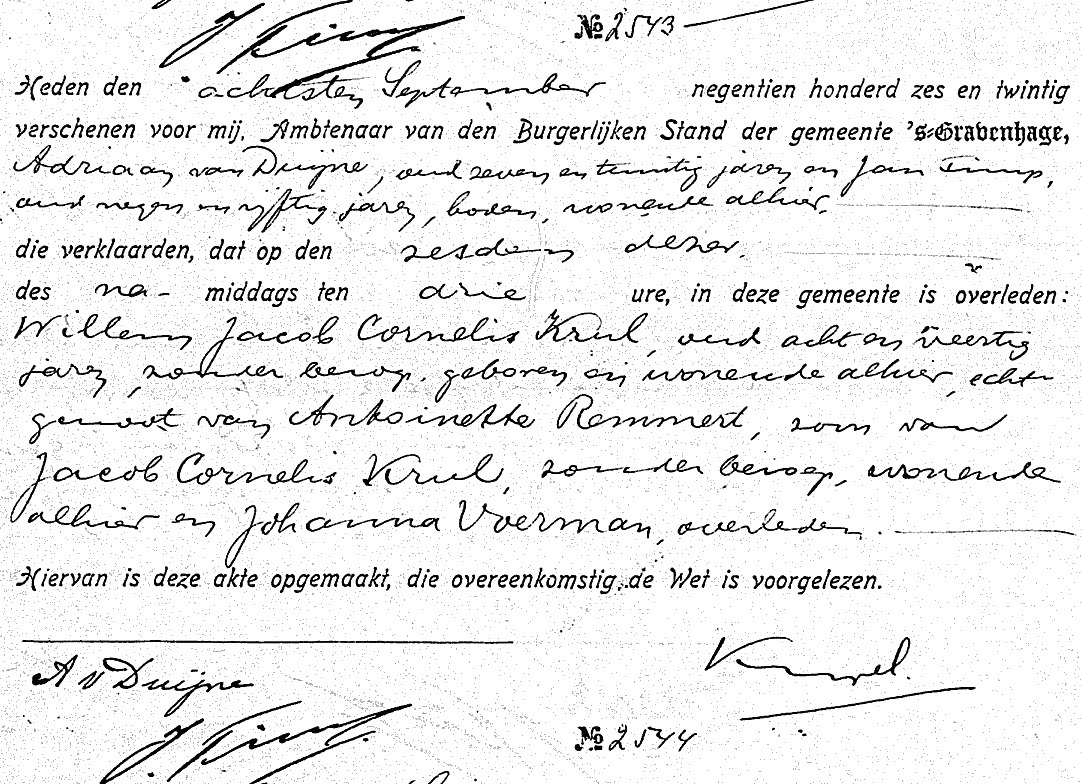 J Timp
№ 2543
Heden den achtsten September negentien honderd zes en twintig
verschenen voor mij, Ambtenaar van den Burgerlijken Stand der gemeente 's-Gravenhage,
Adriaan van Duijne, oud zeven en twintig jaren en Jan Timp,
oud negen en vijftig jaren, boden, wonende alhier,
die verklaarden, dat op den zesden dezer.
des na- middags ten drie ure, in deze gemeente is overleden:
Willem Jacob Cornelis Krul, oud acht en veertig
jaren, zonder beroep, geboren en wonende alhier, echt-
genoot van Antoinette Remmert, zoon van
Jacob Cornelis Krul, zonder beroep, wonende
alhier en Johanna Voerman, overleden.
Hiervan is deze akte opgemaakt, die overeenkomstig de Wet is voorgelezen.
A v Duijne
J. Timp
№ 2544